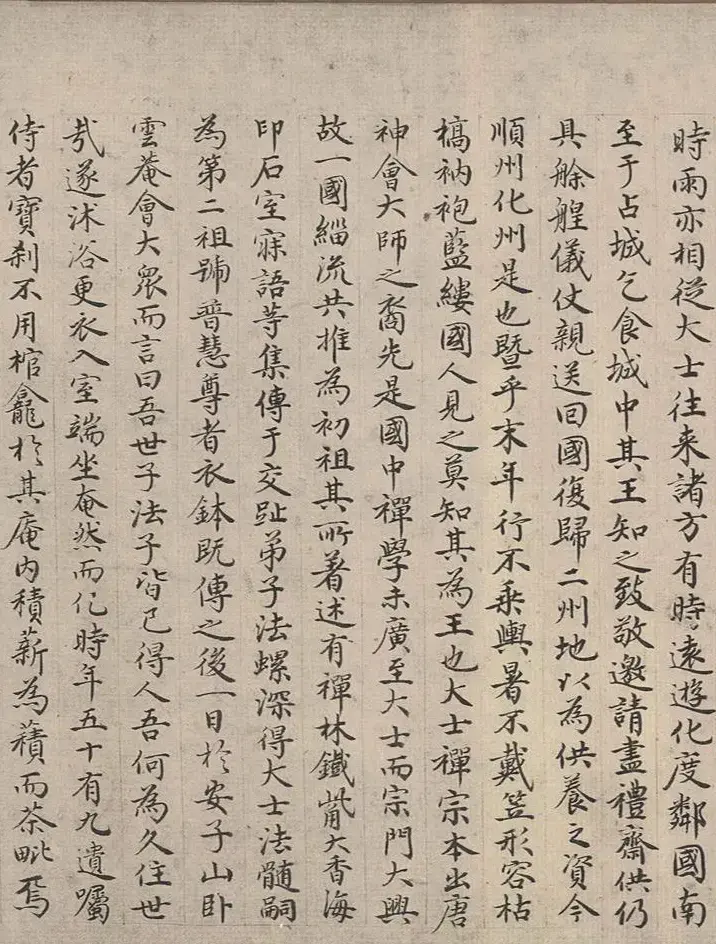 時雨亦相從大士往来諸方有時遠遊化度鄰國南
至于占城乞食城中其王知之致敬邀請盡禮齋供仍
具艅艎儀仗親送回國復歸二州地以為供養之資今
順州化州是也暨乎末年行不乘輿暑不戴笠形容枯
槁衲袍藍縷國人見之莫知其為王也大士禪宗本出唐
神會大師之裔先是國中禪學未廣至大士而宗門大興
故一國緇流共推為初祖其所著述有禪林鐵觜大香海
印石室寐語等集傳于交趾弟子法螺深得大士法髓嗣
為第二祖號普慧尊者衣鉢既傳之後一日於安子山卧
雲菴會大衆而言曰吾世子法子皆已得人吾何為久住世
㦲遂沐浴更衣入室端坐奄然而化時年五十有九遺囑
侍者寶刹不用棺龕於其庵内積薪為𧂐而茶毗焉